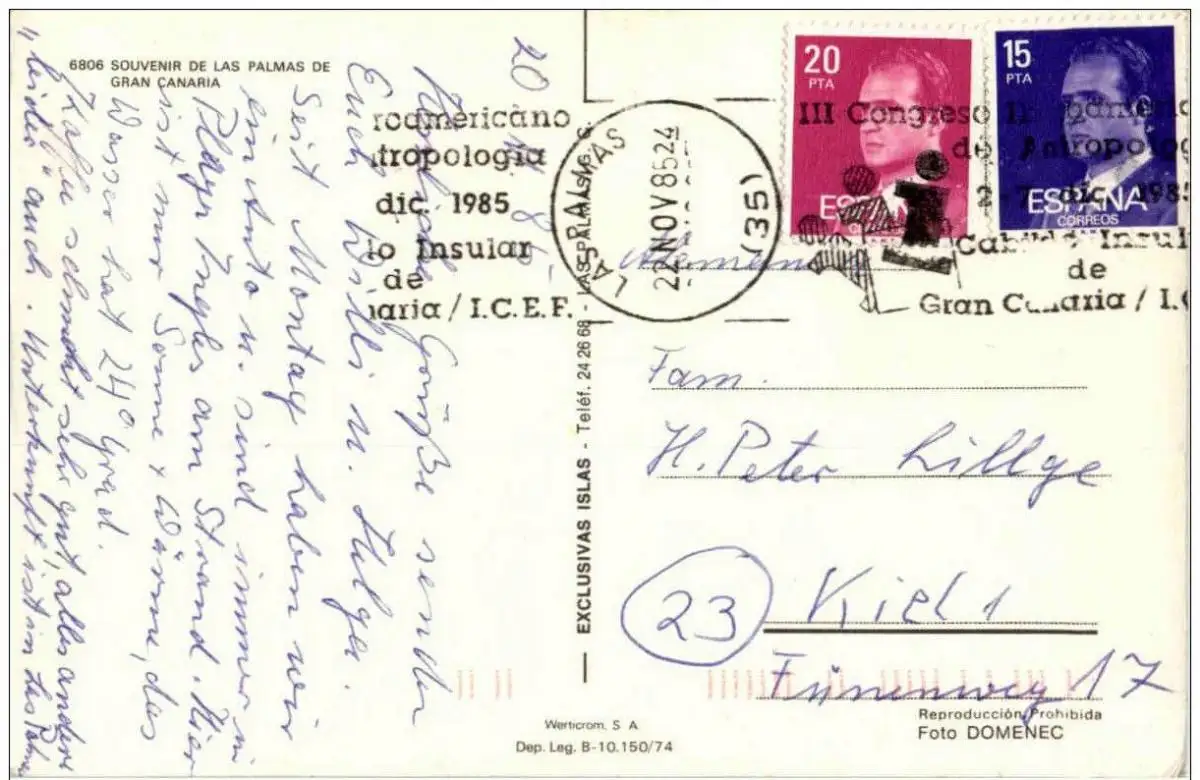 6806 SOUVENIR DE LAS PALMAS DE
GRAN CANARIA
20. 11. 85
Herzliche Grüße senden
Euch Willi u. Helga.
Seit Montag haben wir
ein Auto u. sind immer in
Playa Ingles am Strand. Hier
ist nur Sonne + Wärme, das
Wasser hat 24° Grad.
Kaffee schmeckt sehr gut, alles andere
"leider" auch. Unterkunft ist in Las Palmas
roamericano
ntropología
dic. 1985
lo Insular
de
naria / I.C.E.F.
LAS PALMAS
22 NOV 85 24
(35)
20
PTA
ESPAÑA
15
PTA
ESPAÑA
CORREOS
III Congreso
de Antropolog
dic. 1985
Cabildo Insul
de
Gran Canaria / I.C
Alemania
Fam.
H. Peter Lillge
23 Kiel 1
Fünenweg 17
EXCLUSIVAS ISLAS - Teléf. 24 26 68 - LAS PALMAS G. C.
Werticrom, S. A.
Dep. Leg. B-10.150/74
Reproducción Prohibida
Foto DOMENEC